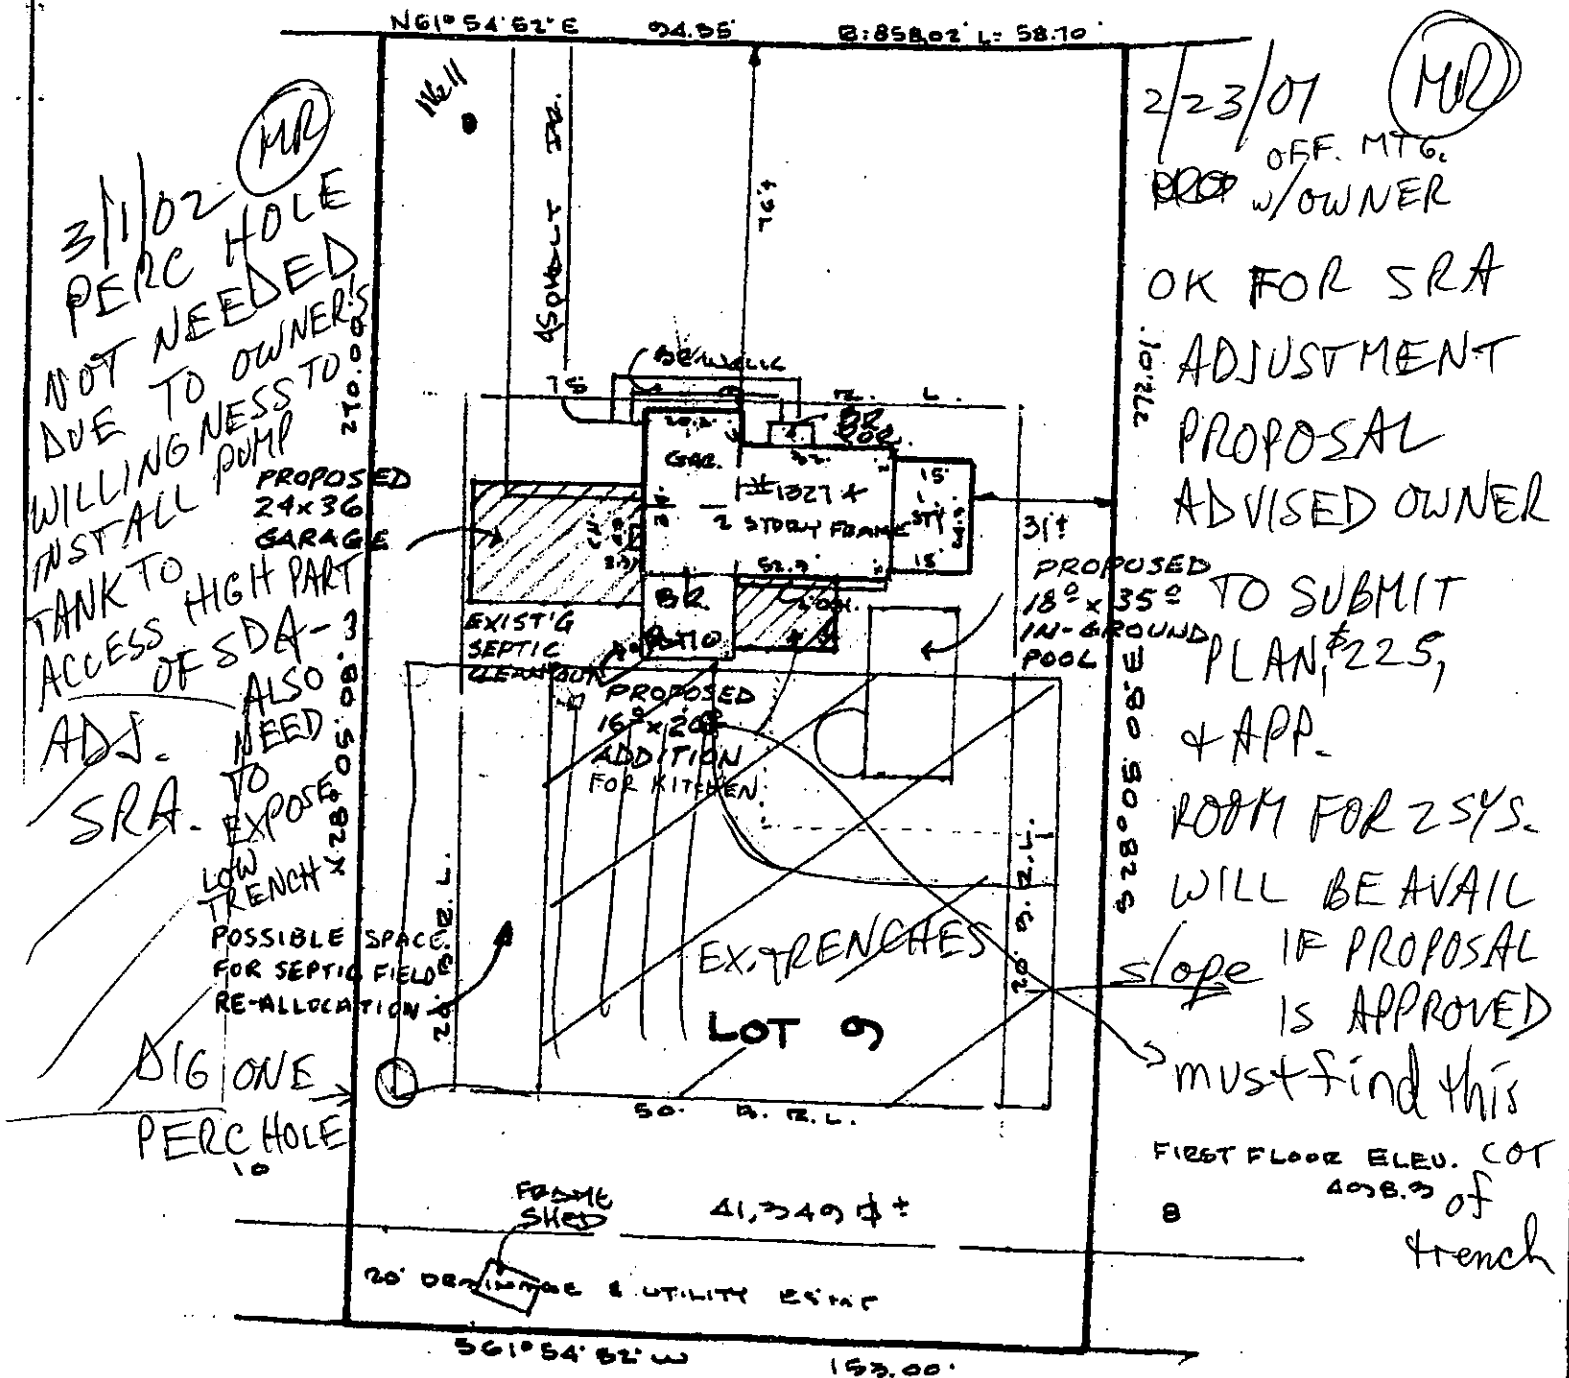 N61°54'52"E 94.35' R:858.02' L= 58.70'
Well
ASPHALT DR.
76'±
3/1/02 MR
PERC HOLE
NOT NEEDED
DUE TO OWNER'S
WILLINGNESS TO
INSTALL PUMP
TANK TO
ACCESS HIGH PART
OF SDA-
ADJ.
SRA.
ALSO
NEED
TO
EXPOSE
LOW
TRENCH
270.00'
N28°05'08"E
2/23/07 MR
OFF. MTG.
w/OWNER
OK FOR SRA
ADJUSTMENT
PROPOSAL
ADVISED OWNER
TO SUBMIT
PLAN, $225,
+ APP.
ROOM FOR 2 SYS.
WILL BE AVAIL
IF PROPOSAL
IS APPROVED
must find this
COT
of
trench
slope
272.01'
BR WALK
75'
B. R. L.
BR
POR.
20.2
GAR.
32.
#1327
2 STORY FRAME
52.3
15'
1
STY
15'
31'±
PROPOSED
24x36
GARAGE
EXIST'G
SEPTIC
CLEAN OUT
BR.
PATIO
PROPOSED
16⁰ x 20⁰
ADDITION
FOR KITCHEN
PROPOSED
18⁰ x 35⁰
IN-GROUND
POOL
POSSIBLE SPACE
FOR SEPTIC FIELD
RE-ALLOCATION
20' B.R.L.
20' B.R.L.
EX. TRENCHES
LOT 9
DIG ONE
PERC HOLE
10
50' B. R. L.
FIRST FLOOR ELEV.
FRAME
SHED
41,349 ±
8
20' DRAINAGE & UTILITY ESM'T
S61°54'52"W 153.00'